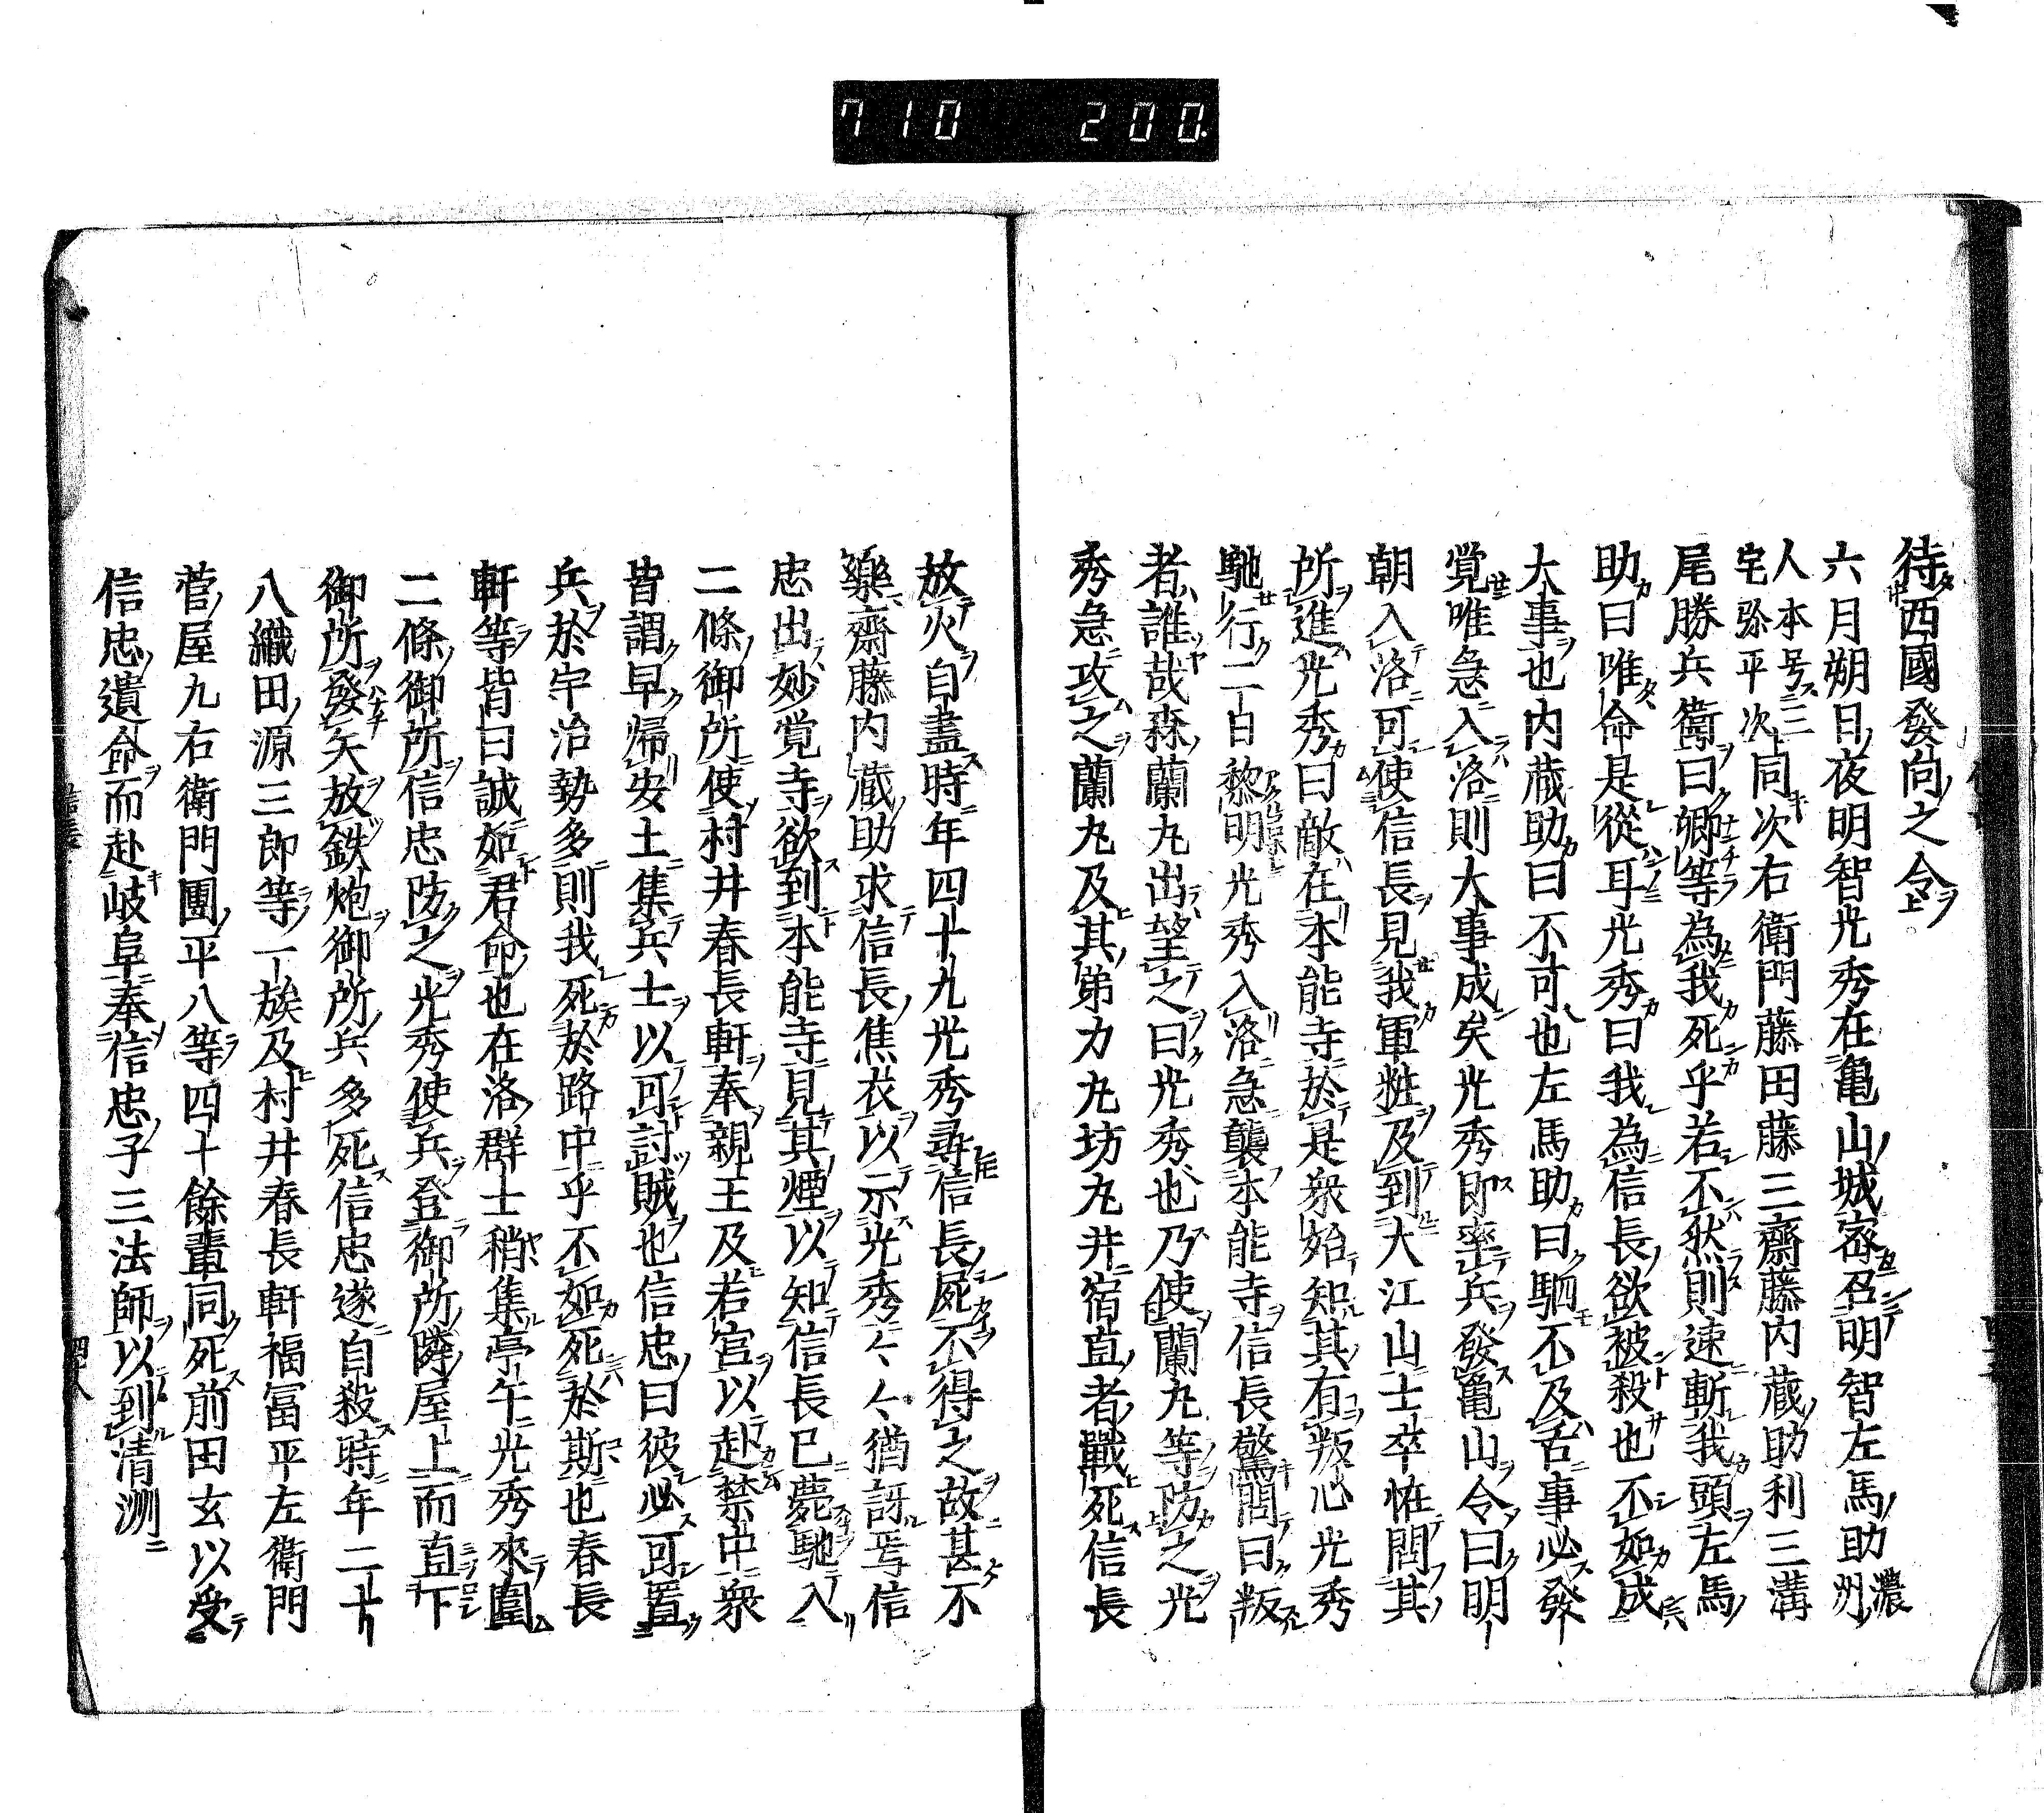 710 200.
待西國發向之令
六月朔日夜明智光秀在亀山城密召明智左馬助濃洲
人本号三宅弥平次同次右衛門藤田藤三齋藤内蔵助利三溝
尾勝兵衛曰卿等為我死乎若不然則速斬我頭左馬
助曰唯命是從耳光秀曰我為信長欲被殺也不如成
大事也内蔵助曰不可也左馬助曰駟不及舌事必發
覚唯急入洛則大事成矣光秀即率兵發亀山令曰明
朝入洛可使信長見我軍粧及到大江山士卒恠問其
所進光秀曰敵在本能寺於是衆始知其有叛心光秀
馳行二日黎明光秀入洛急襲本能寺信長驚問曰叛
者誰哉森蘭丸出望之曰光秀也乃使蘭丸等防之光
秀急攻之蘭丸及其弟力丸坊丸并宿直者戰死信長
放火自盡時年四十九光秀尋信長屍不得之故甚不
樂齋藤内蔵助求信長焦衣以示光秀々々猶訝焉信
忠出妙覚寺欲到本能寺見其煙以知信長已薨馳入
二條御所使村井春長軒奉親王及若宮以赴禁中衆
皆謂早歸安土集兵士以可討賊也信忠曰彼必可置
兵於宇治勢多則我死於路中乎不如死於斯也春長
軒等皆曰誠如君命也在洛群士稍集亭午光秀來圍
二條御所信忠防之光秀使兵登御所隣屋上而直下
御所發矢放鉄炮御所兵多死信忠遂自殺時年二十
八織田源三郎等一族及村井春長軒福冨平左衛門
菅屋九右衛門團平八等四十餘輩同死前田玄以受
信忠遺命而赴岐阜奉信忠子三法師以到清洲